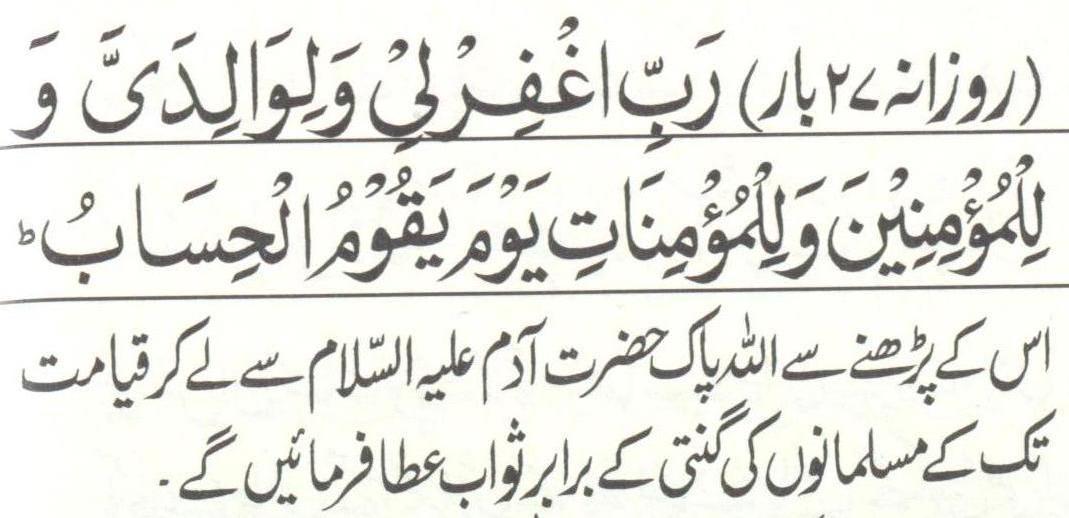 (روزانہ ۲۷ بار) رَبِّ اغْفِرْلِیْ وَلِوَالِدَیَّ وَ
لِلْمُؤْمِنِیْنَ وَلِلْمُؤْمِنَاتِ یَوْمَ یَقُوْمُ الْحِسَابُ ؕ
اس کے پڑھنے سے اللہ پاک حضرت آدم علیہ السّلام سے لے کر قیامت
تک کے مسلمانوں کی گنتی کے برابر ثواب عطا فرمائیں گے ۔